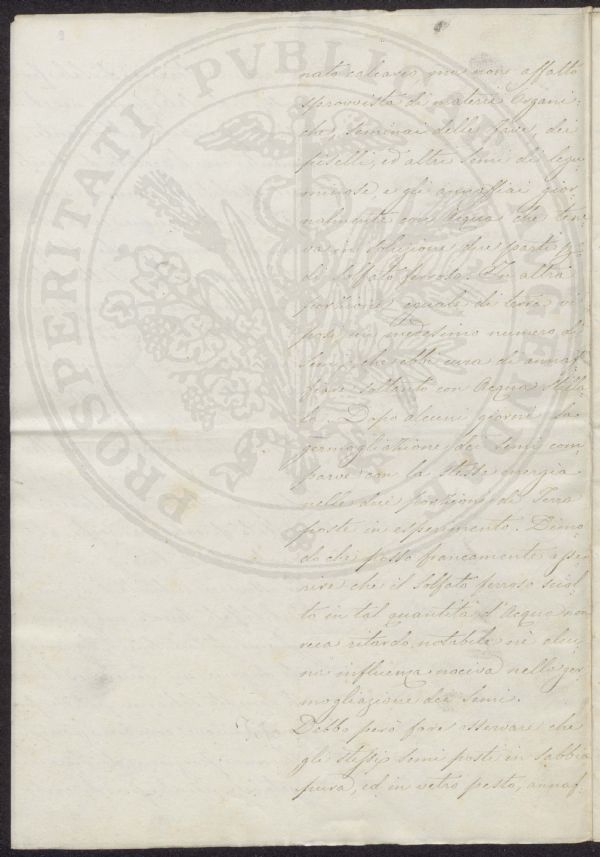 nato calcareo, ma non affatto
sprovvista di materie Organi-
che, seminai delle fave, dei
piselli, ed altri semi di legu-
minose e gli annaffiai gior-
nalmente con Acqua che tene-
va in soluzione due parti
di Solfato ferroso. In altra
porzione eguale di terra vi
posi un medesimo numero di
Semi, che ebbi cura di annaf-
fiare soltanto con Acqua stilla-
ta. Dopo alcuni giorni la
germogliazione dei semi com-
parve con la stessa energia
nelle due porzioni di Terra
poste in esperimento. Dimo-
do che posso francamente
che il Solfato ferroso sciol-
to in tal quantità d'Acqua non
reca ritardo notabile nè alcu-
na influenza nociva nella ger-
mogliazione dei Semi.
Debbo però fare osservare che
gli stessi semi posti in sabbia
pura, ed in vetro pesto, annaf-
PROSPERITATI PVBLICAE AVGENDAE